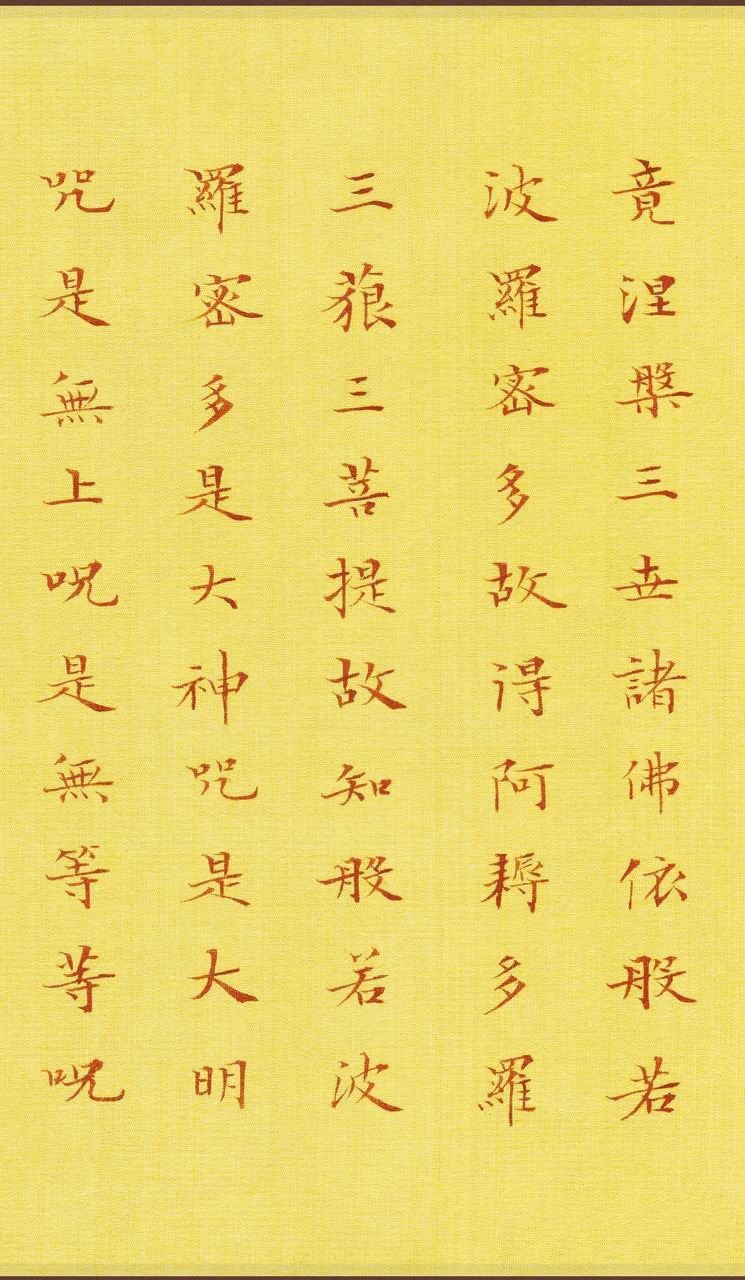 竟涅槃三世諸佛依般若
波羅蜜多故得阿耨多羅
三藐三菩提故知般若波
羅蜜多是大神咒是大明
咒是無上咒是無等等咒